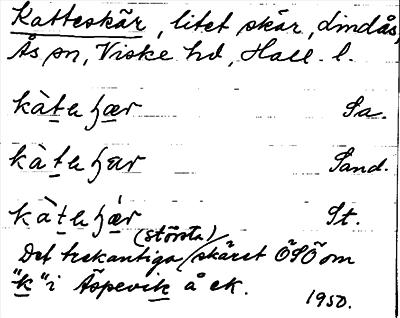 Katteskär, litet skär, Lindås,
Ås sn, Viske hd, Hall. l.
Sa.
Sand.
St.
(största)
Det trekantiga skäret ÖSÖ om
"k" i Äspevik å ek.
1950.